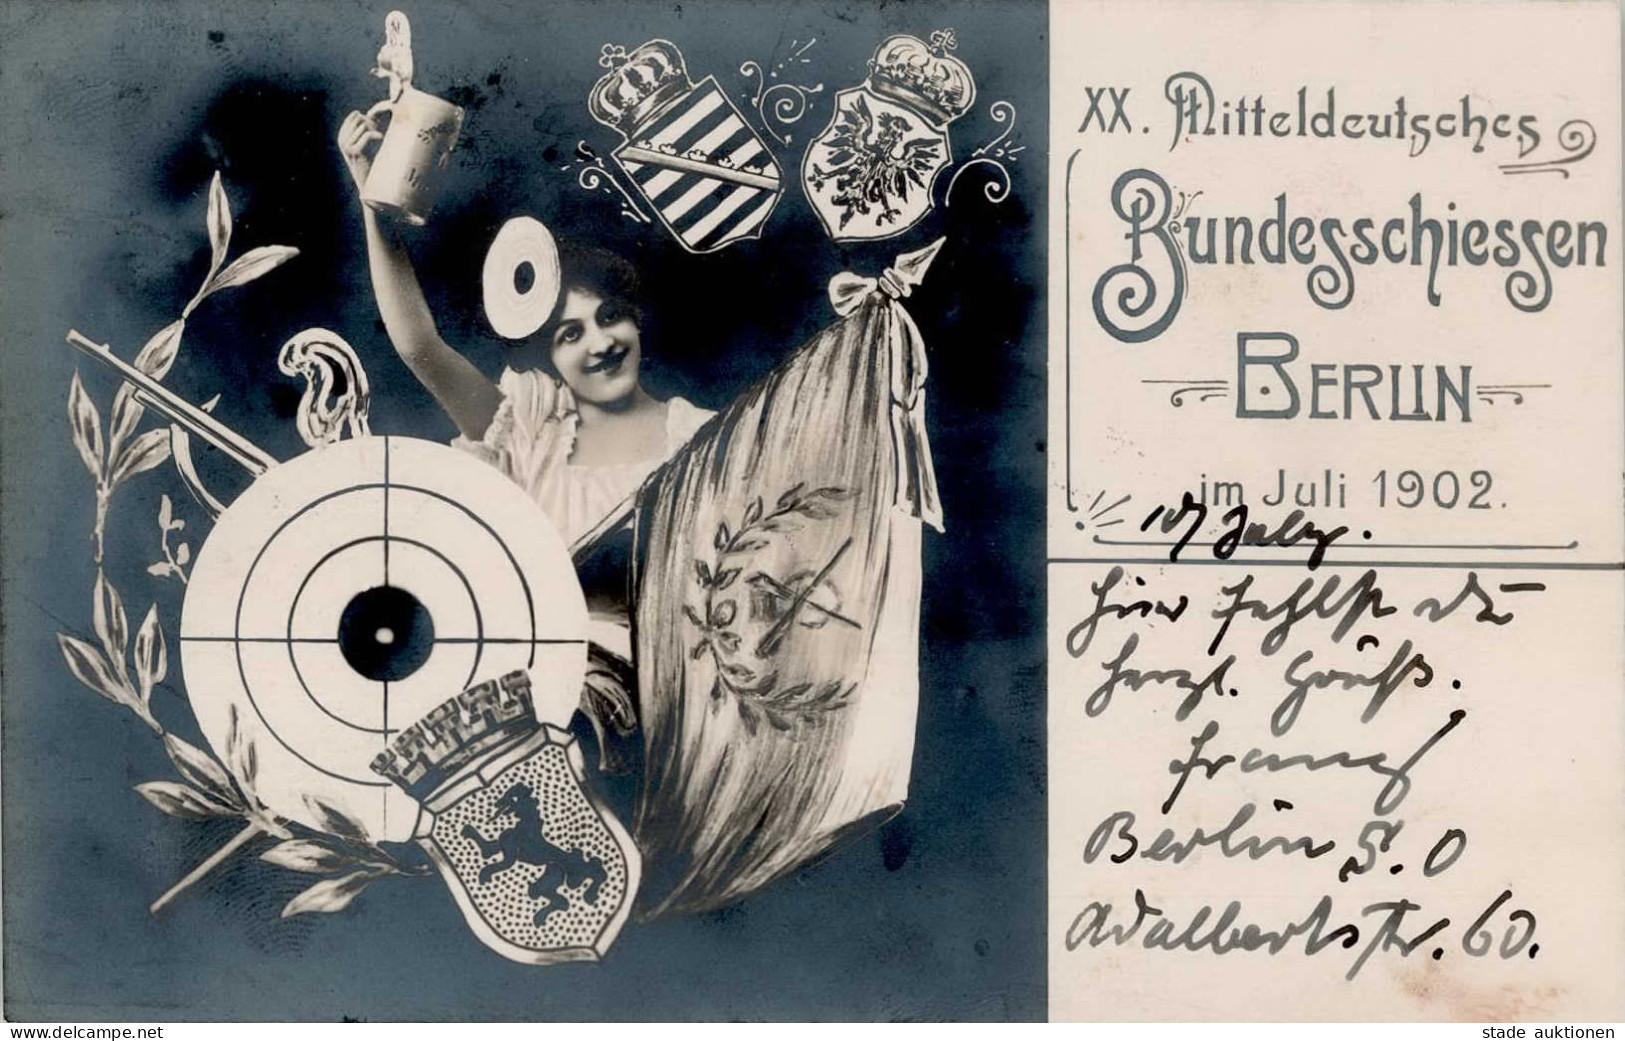 XX. Mitteldeutsches
Bundesschiessen
BERLIN
im Juli 1902.
July.
Hier fehlst Du
Herzl. Gruß.
Franz
Berlin S.O
Adalbertstr. 60.
www.delcampe.net
stade auktionen